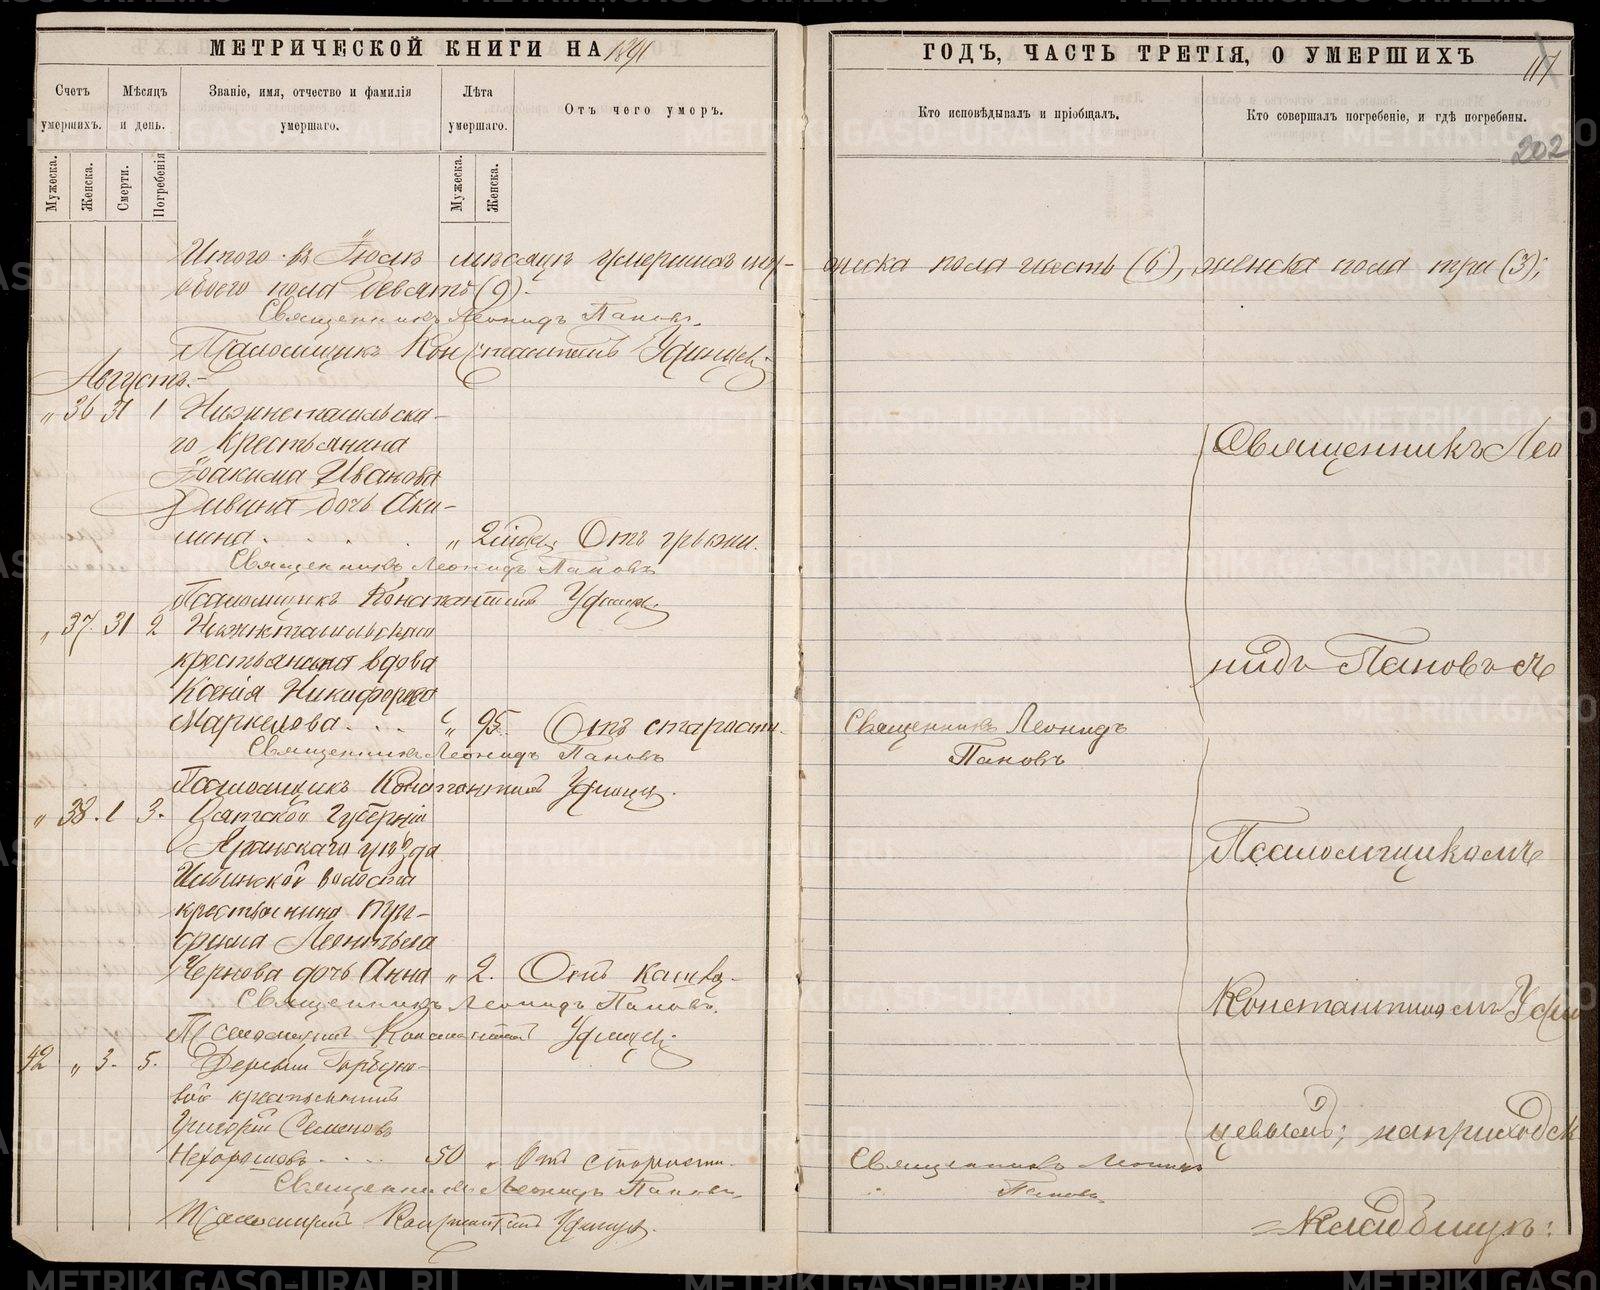 МЕТРИЧЕСКОЙ КНИГИ НА 1891
ГОДЪ, ЧАСТЬ ТРЕТІЯ, О УМЕРШИХЪ
117
202
Счетъ умершихъ.
Мѣсяцъ и день.
Званіе, имя, отчество и фамилія умершаго.
Лѣта умершаго.
Отъ чего умеръ.
Кто исповѣдывалъ и пріобщалъ.
Кто совершалъ погребеніе, и гдѣ погребены.
Мужеска.
Женска.
Смерти.
Погребенія
Мужеска.
Женска.
Итого въ Іюлѣ мѣсяцѣ умершихъ му-
жеска пола шесть (6), женска пола три (3);
обоего пола девять (9).
Священникъ Леонидъ Пановъ.
Псаломщикъ Константинъ Уфинцев
Августъ.-
„ 36 31 1 Нижнетагильска-
го крестьянина
Іоакима Иванова
дочь Аки-
лина. . . . . „ 2 Отъ грыжи.
Священникъ Леонидъ Пановъ
Псаломщикъ Константинъ Уфинцев
„ 37. 31 2 Нижнетагильская
крестьянская вдова
Ксенія Никифорова
Маркелова. . . . „ 95. Отъ старости.
Священникъ Леонидъ Пановъ
Псаломщикъ Константинъ Уфинцев.
„ 38. 1 3. Вятской Губерніи
Яранскаго уѣзда
волости
крестьянина
Леонтьева
Чернова дочь Анна „ 2. Отъ кашля.
Священникъ Леонидъ Пановъ.
Псаломщикъ Константинъ Уфинцев
42 „ 3. 5. Деревни Горбуно-
вой крестьянинъ
Григорій Семеновъ
Нехорошовъ. . . . 50 „ Отъ старости.
Священникъ Леонидъ Пановъ
Псаломщикъ Константинъ Уфинцев.
Священникъ Леонидъ
Пановъ
Священникъ Леонидъ
Пановъ
Священникъ Лео
нидъ Пановъ съ
Псаломщикомъ
Константиномъ Уфин
цевымъ; на приходск
Кладбищѣ:
METRIKI.GASO-URAL.RU